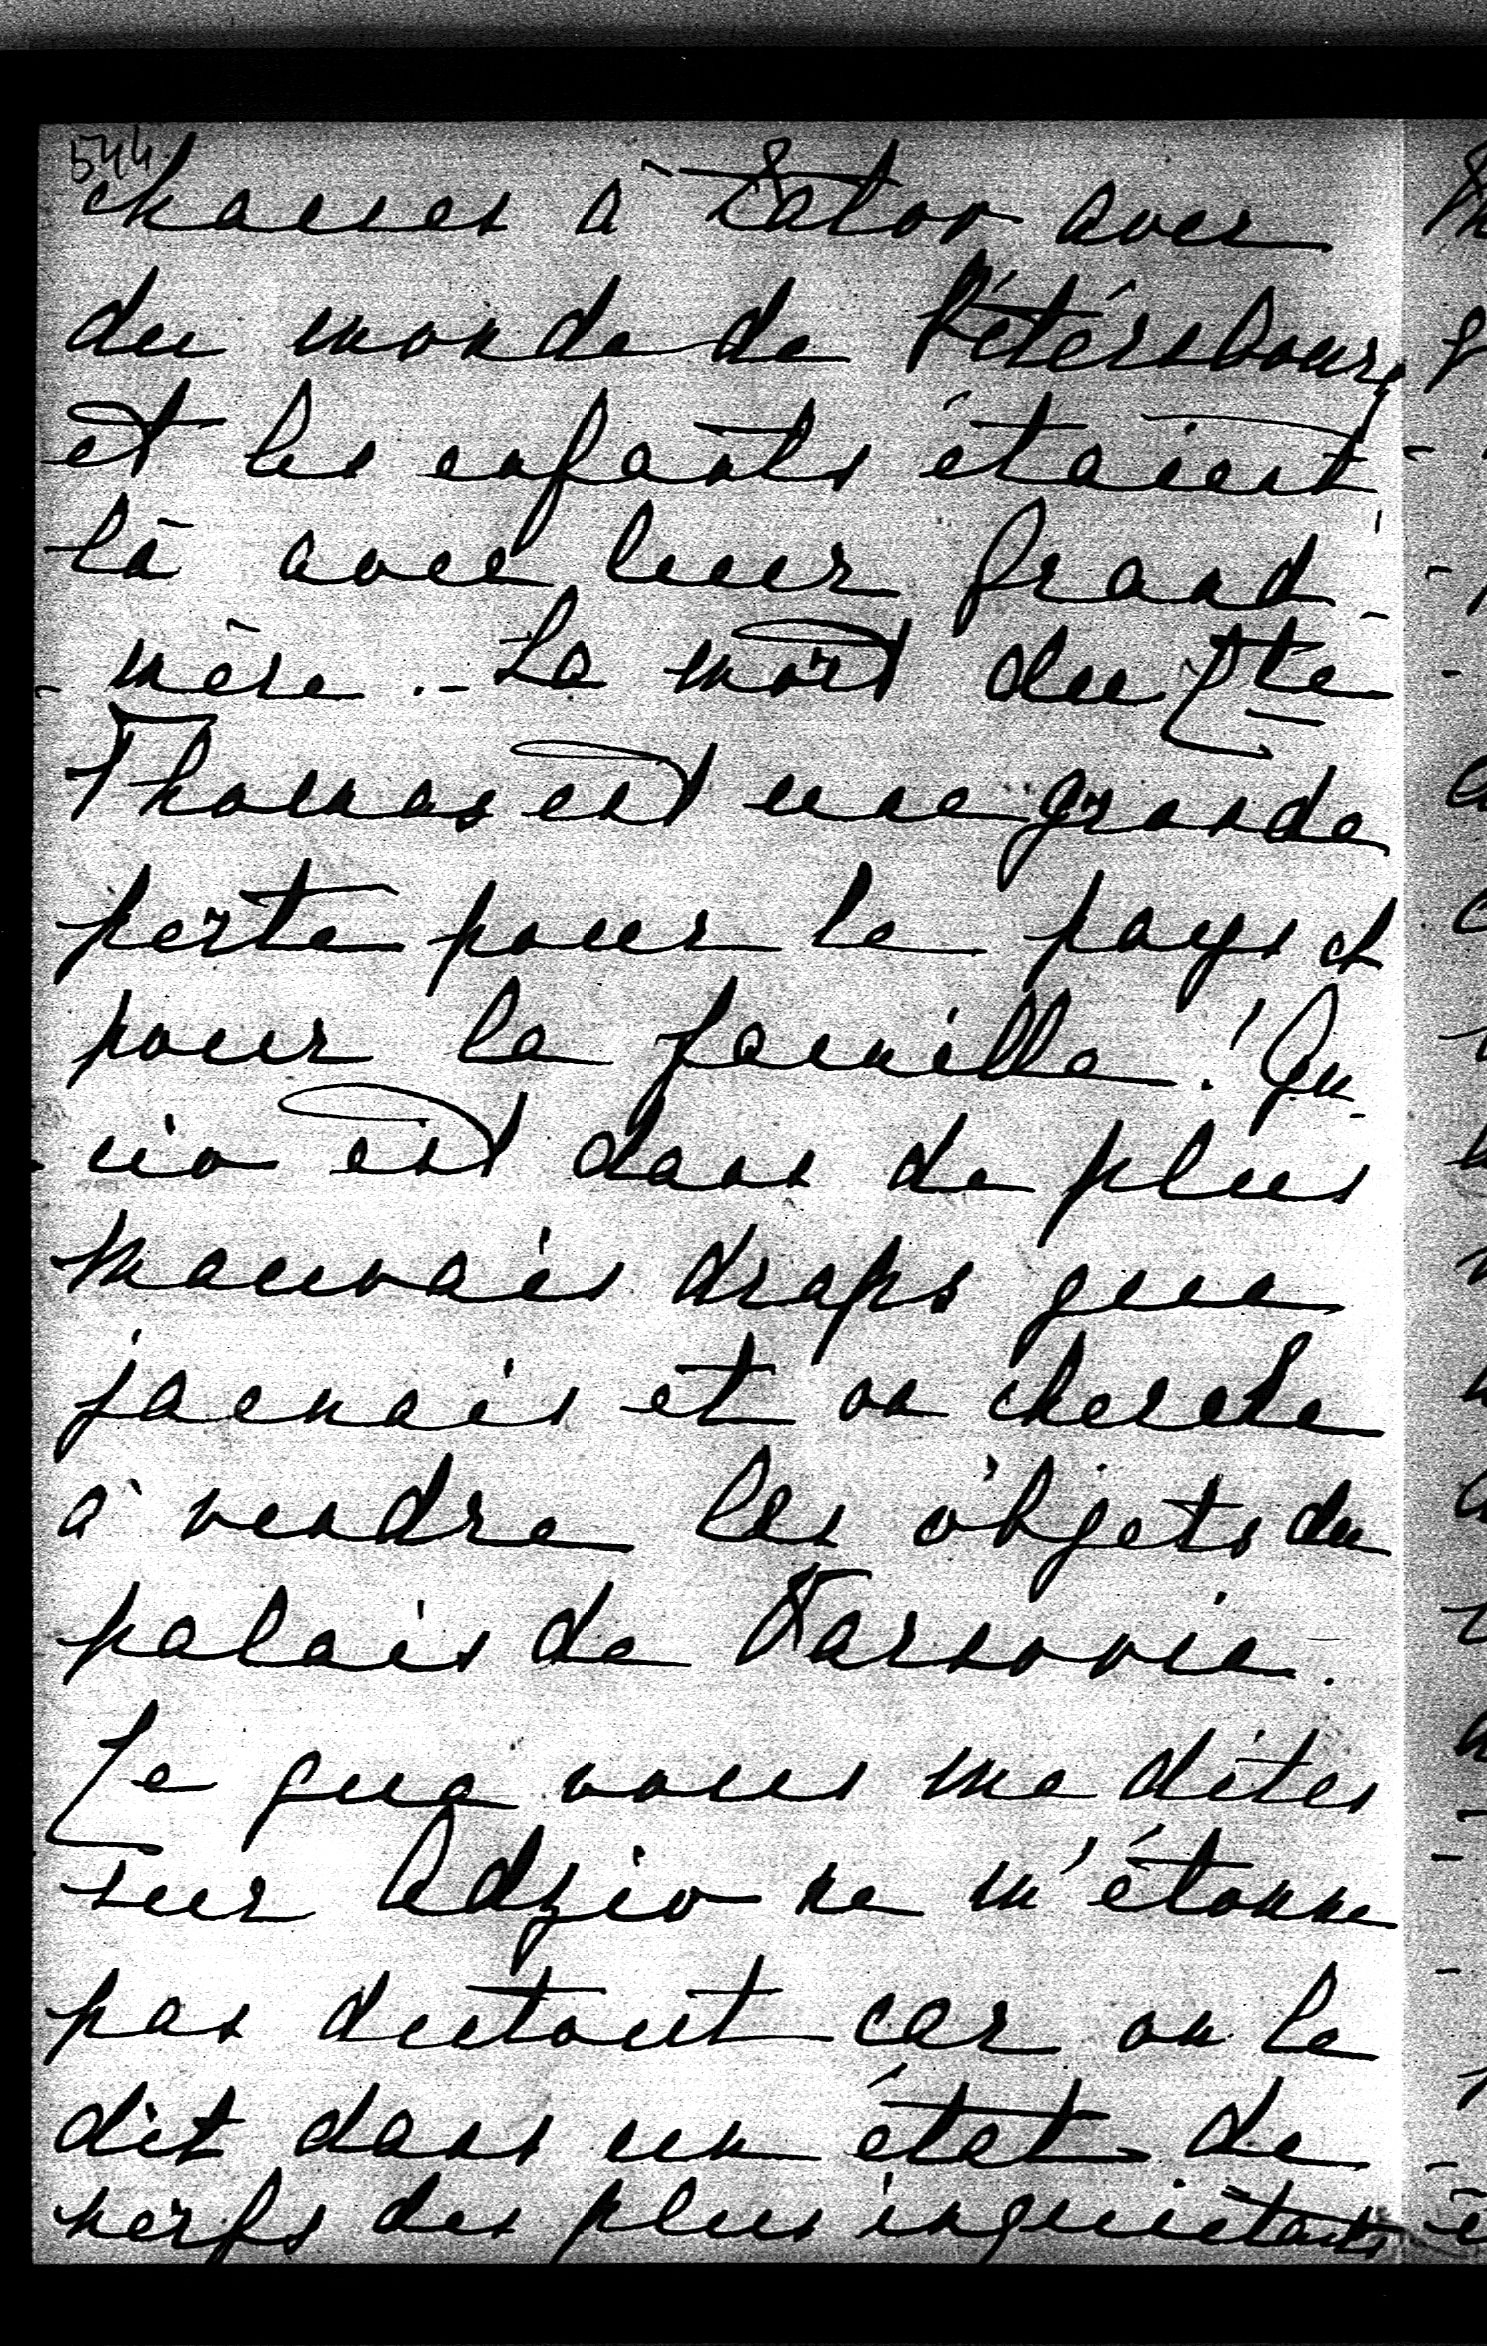 544.
chasses à Zator avec
du monde de Pétérsbourg
et les enfants étaient
là avec leur Grand-
-mère.- La mort du Cte
Thomas est une grande
perte pour le pays et
pour la famille! Gu-
-cio est dans de plus
mauvais draps que
jamais et on cherche
à vendre les objets du
palais de Varsovie.
Ce que vous me dites
sur Adzio ne m'étonne
pas dutout car on le
dit dans un état de
nerfs des plus inquiétants